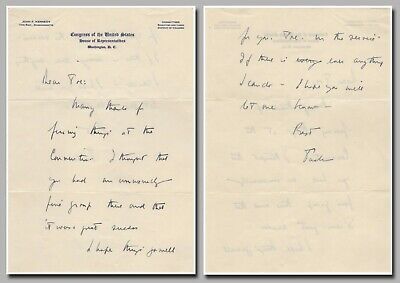 JOHN F. KENNEDY
Congress of the United States
House of Representatives
Washington, D. C.
COMMITTEES:
EDUCATION AND LABOR
DISTRICT OF COLUMBIA
Dear Joe:
Many thanks for
fixing things at the
Convention. I thought that
you had an unusually
fine group there and that
it was a great success
I hope things go well
for you, Joe, in the service-
If there is ever anything
I can do - I hope you will
let me know -
Best
Jack